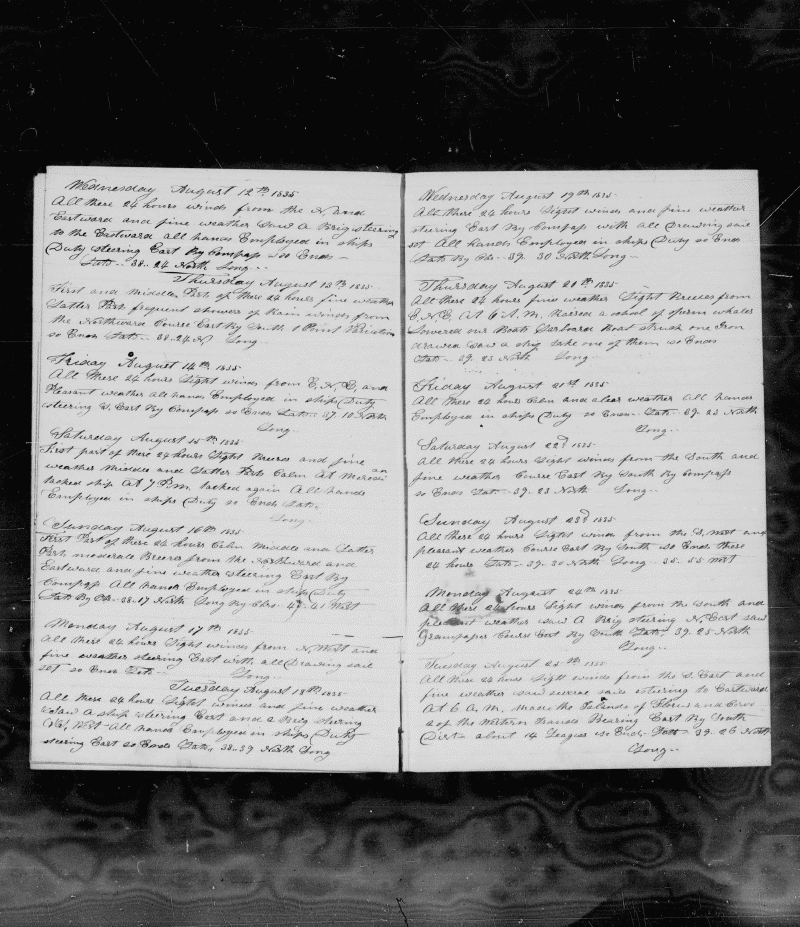 Wednesday August 12th 1835
All these 24 hours winds from the N. and
Eastward and fine weather Saw A Brig steering
to the Eastward all hands Employed in ships
Duty steering East By Compass so Ends
Latt-- 38..24 North Long--
Thursday August 13th 1835
First and Middle Part of these 24 hours fine weather
Latter Part frequent showers of Rain winds from
the Northward Course East By South 1 Point Variation
so Ends Latt-- 38.24 N Long--
Friday August 14th 1835
All these 24 hours Light winds from E. N. E. and
Pleasant weather all hands Employed in ships Duty
steering S. East By Compass so Ends Latt-- 37.10 North
Long--
Saturday August 15th 1835
First part of these 24 hours Light Breezes and fine
weather Middle and Latter Parts Calm At Meredi an
tacked ship At 7 P.M. tacked again All hands
Employed in ships Duty so Ends Latt--
Long--
Sunday August 16th 1835
First Part of these 24 hours Calm Middle and Latter
Parts moderate Breezes from the Northward and
Eastward and fine weather steering East By
Compass All hands Employed in ships Duty
Latt By Obs-- 38.17 North Long By Chro 41 West
Monday August 17th 1835
All these 24 hours Light winds from N. West and
fine weather steering East with all Drawing sail
set so Ends Latt--
Long--
Tuesday August 18th 1835
All these 24 hours Light winds and fine weather
Saw A ship steering East and a Brig steering
West All hands Employed in ships Duty
steering East so Ends Latt-- 38..39 North Long
Wednesday August 19th 1835
All these 24 hours Light winds and fine weather
steering East By Compass with all Drawing sail
set All hands Employed in ships Duty so Ends
Latt By Obs-- 39. 30 North Long--
Thursday August 20th 1835
All these 24 hours fine weather Light Breezes from
E. N. E. At 6 A.M. Raised a school of sperm whales
Lowered our Boats Larboard Boat struck one Iron
drawed saw a ship take one of them so Ends
Latt-- 39.23 North Long--
Friday August 21st 1835
All these 24 hours Calm and clear weather All hands
Employed in ships Duty so Ends-- Latt-- 39.23 North
Long--
Saturday August 22d 1835
All these 24 hours Light winds from the South and
fine weather Course East By South By Compass
so Ends Latt-- 39.23 North Long--
Sunday August 23d 1835
All these 24 hours Light winds from the S. West and
pleasant weather Course East By South so Ends these
24 hours Latt-- 39.30 North Long-- 35.55 West
Monday August 24th 1835
All these 24 hours Light winds from the South and
pleasant weather saw A Brig steering N. East saw
Grampuses Course East By South Latt-- 39.25 North
Long--
Tuesday August 25th 1835
All these 24 hours Light winds from the S. East and
fine weather saw several sails steering to Eastward
At 6 A.M. made the Islands of Flores and Corvo
2 of the Western Islands Bearing East By South
Dist. about 14 Leagues so Ends-- Latt-- 39.26 North
Long--